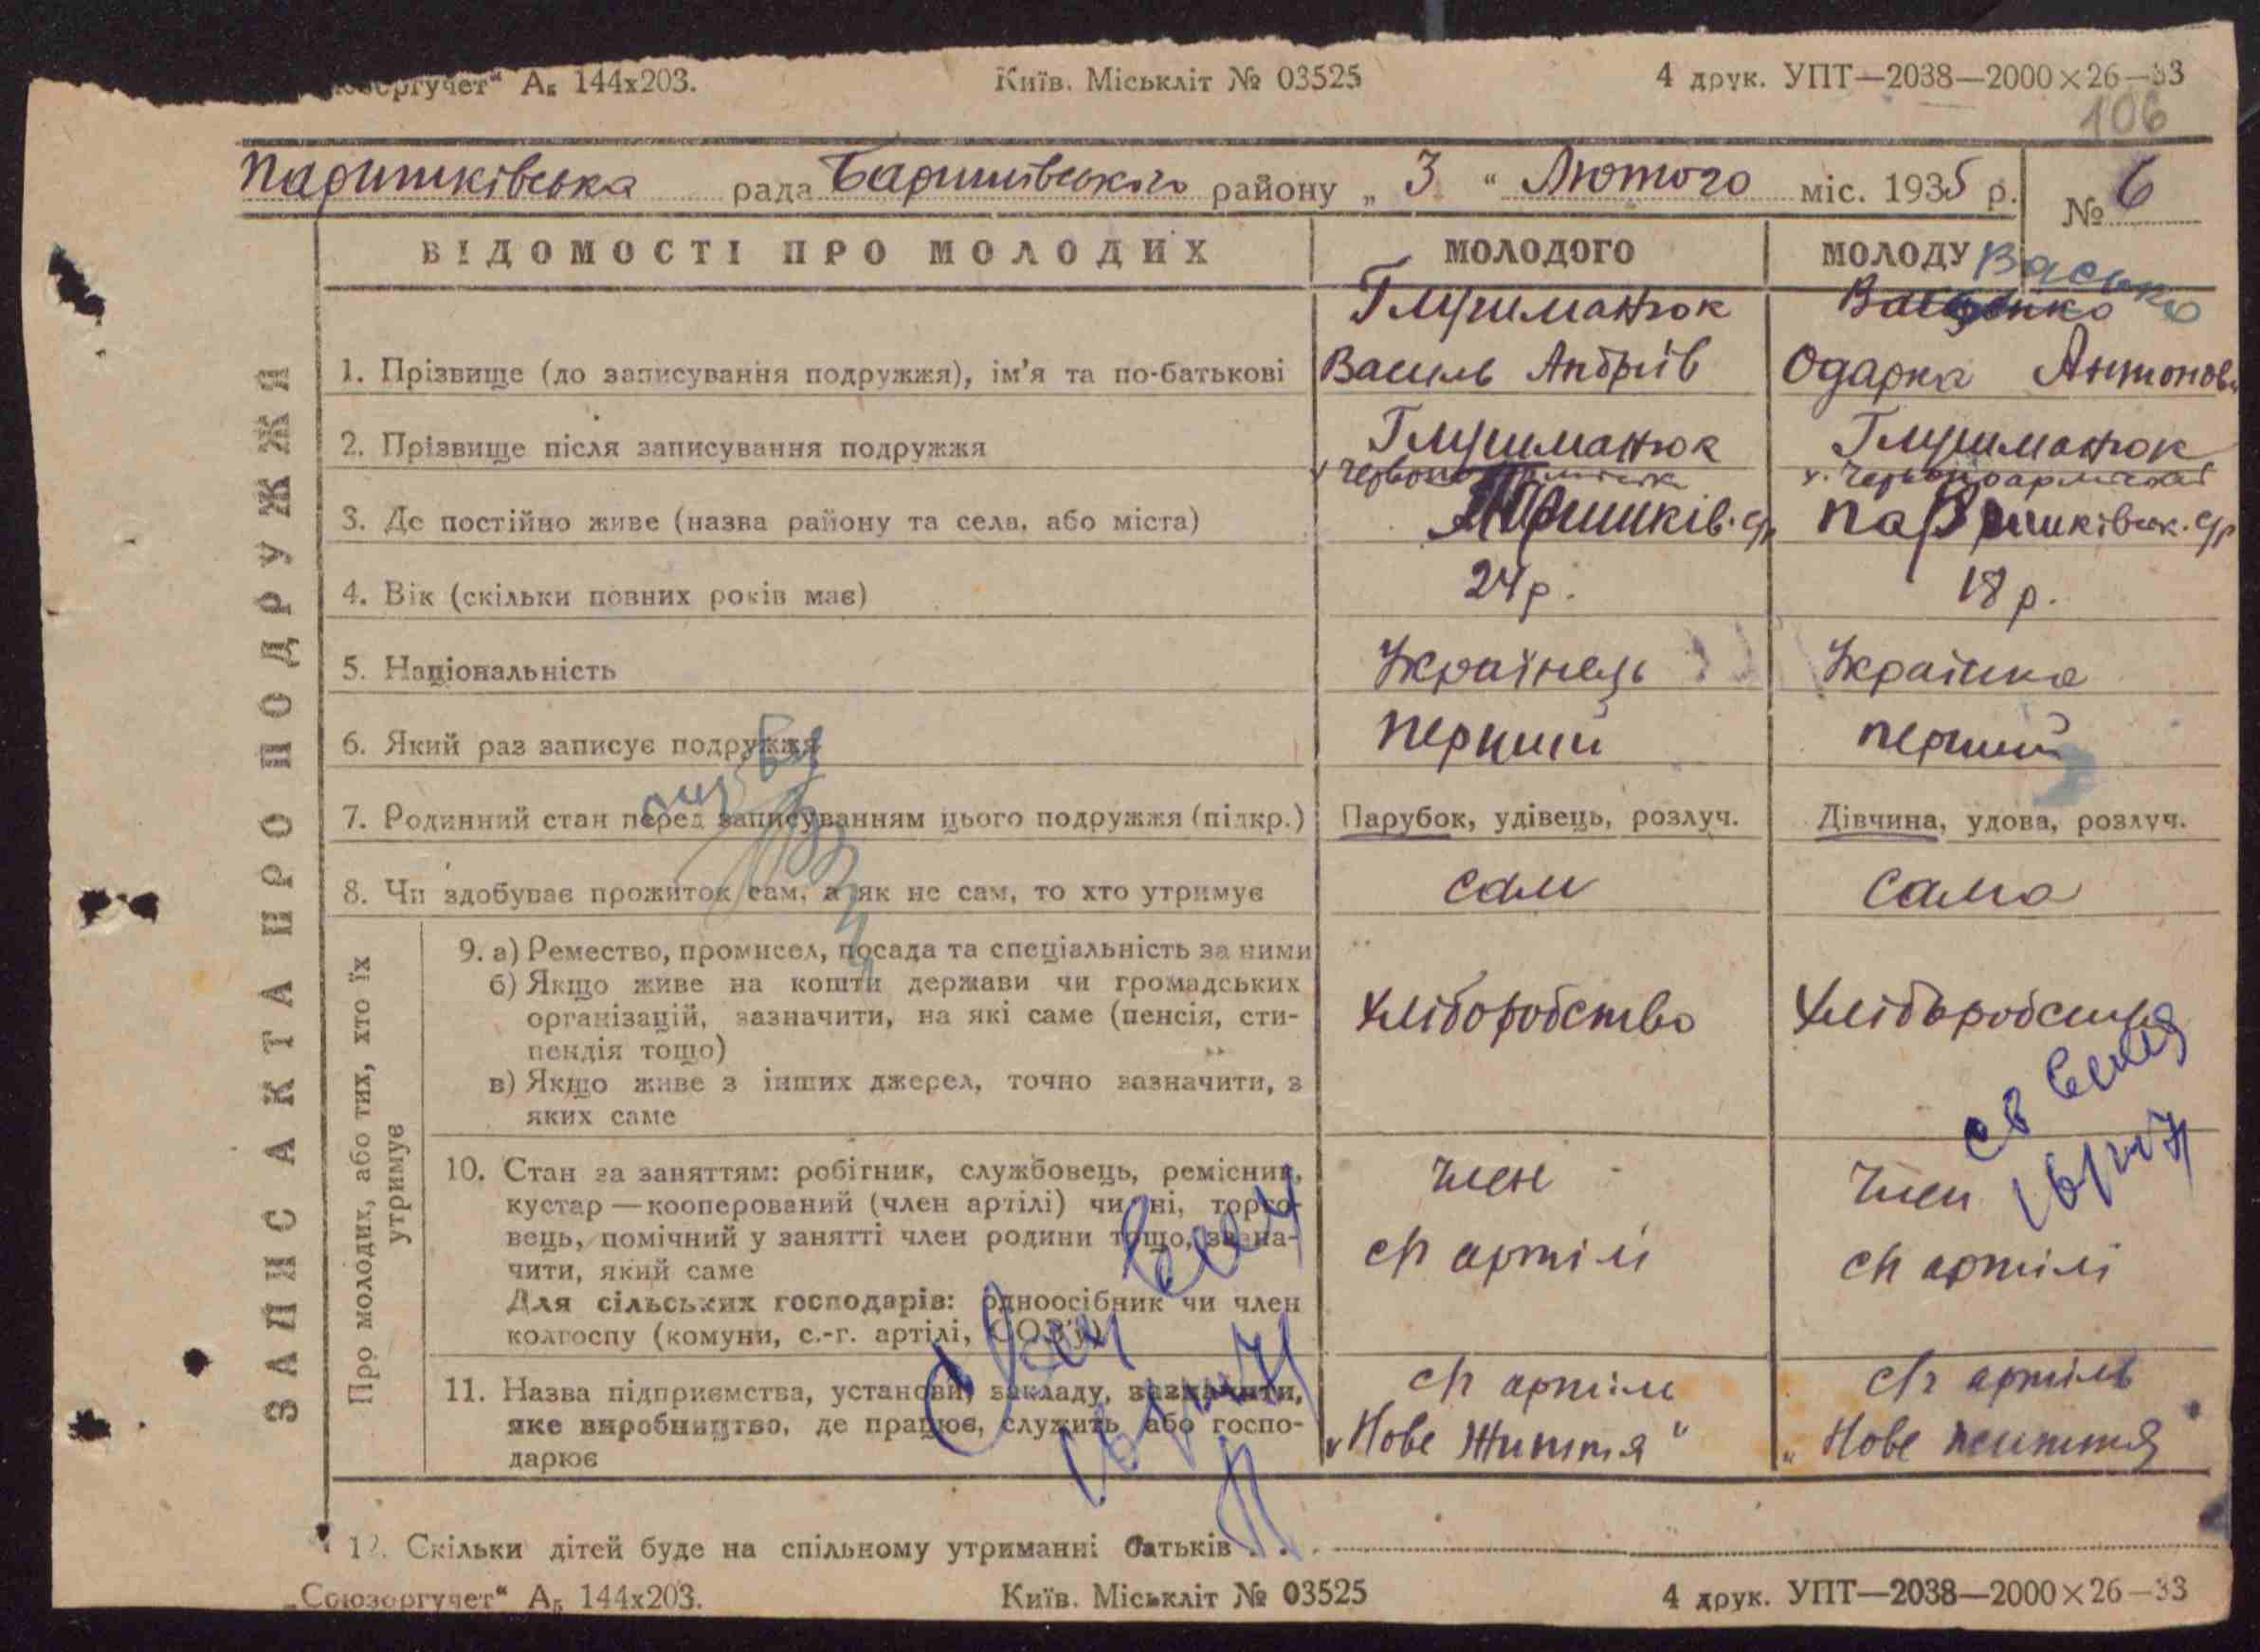 А₅ 144х203. Київ. Міськліт № 03525 4 друк. УПТ—2038—2000×26—33
106
Паришківська рада Баришівського району „ 3 “ Лютого міс. 1935 р. № 6
ВІДОМОСТІ ПРО МОЛОДИХ МОЛОДОГО МОЛОДУ Васько
1. Прізвище (до записування подружжя), ім'я та по-батькові Василь Андріїв Одарка Антонов
2. Прізвище після записування подружжя
3. Де постійно живе (назва району та села, або міста) Паришків. с/р Паришківськ. с/р
4. Вік (скільки повних років має) 24 р. 18 р.
5. Національність Українець Українка
6. Який раз записує подружжя перший перший
7. Родинний стан перед записуванням цього подружжя (підкр.) Парубок, удівець, розлуч. Дівчина, удова, розлуч.
8. Чи здобуває прожиток сам, а як не сам, то хто утримує сам сама
9. а) Ремество, промисел, посада та спеціальність за ними
б) Якщо живе на кошти держави чи громадських
організацій, зазначити, на які саме (пенсія, сти-
пендія тощо)
Хліборобство Хліборобство
в) Якщо живе з інших джерел, точно зазначити, з
яких саме
10. Стан за заняттям: робітник, службовець, ремісник, член член
кустар—кооперований (член артілі) чи ні, торго-
вець, помічний у занятті член родини тощо, зазна- сг артілі сг артілі
чити, який саме
Для сільських господарів: одноосібник чи член
колгоспу (комуни, с.-г. артілі, СОЗ'у)
11. Назва підприємства, установи, закладу, зазначити, сг артіль сг артіль
яке виробництво, де працює, служить або госпо- „Нове Життя“ „Нове життя
дарює
12. Скільки дітей буде на спільному утриманні батьків . .
„Союзоргучет“ А₅ 144х203. Київ. Міськліт № 03525 4 друк. УПТ—2038—2000×26—33
ЗАПИС АКТА ПРО ПОДРУЖЖЯ
Про молодих, або тих, хто їх
утримує